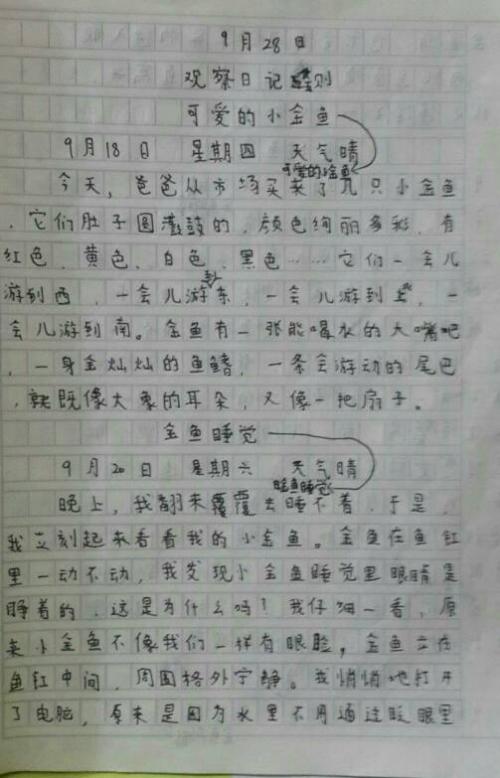 9月28日
观察日记 则
可爱的小金鱼
9月18日 星期四 天气晴
可爱的金鱼
今天，爸爸从市场买来了几只小金鱼
，它们肚子圆 鼓的，颜色绚丽多彩，有
红色、黄色、白色、黑色……它们一会儿
游到西，一会儿游到东，一会儿游到 ，一
会儿游到南。金鱼有一张能喝水的大嘴吧
，一身金灿灿的鱼鳍，一条会游动的尾巴
，就既像大象的耳朵，又像一把扇子。
金鱼睡觉
9月20日 星期六 天气晴
金鱼睡觉
晚上，我翻来覆覆去睡不着，于是，
我立刻起来看看我的小金鱼。金鱼在鱼缸
里一动不动，我发现小金鱼睡觉里眼睛是
睁着的，这是为什么吗？我仔细一看，原
来小金鱼不像我们一样有眼脸，金鱼立在
鱼缸中间，周围格外宁静。我悄悄地打开
了电脑，原来是因为水里不用通过眨眼里